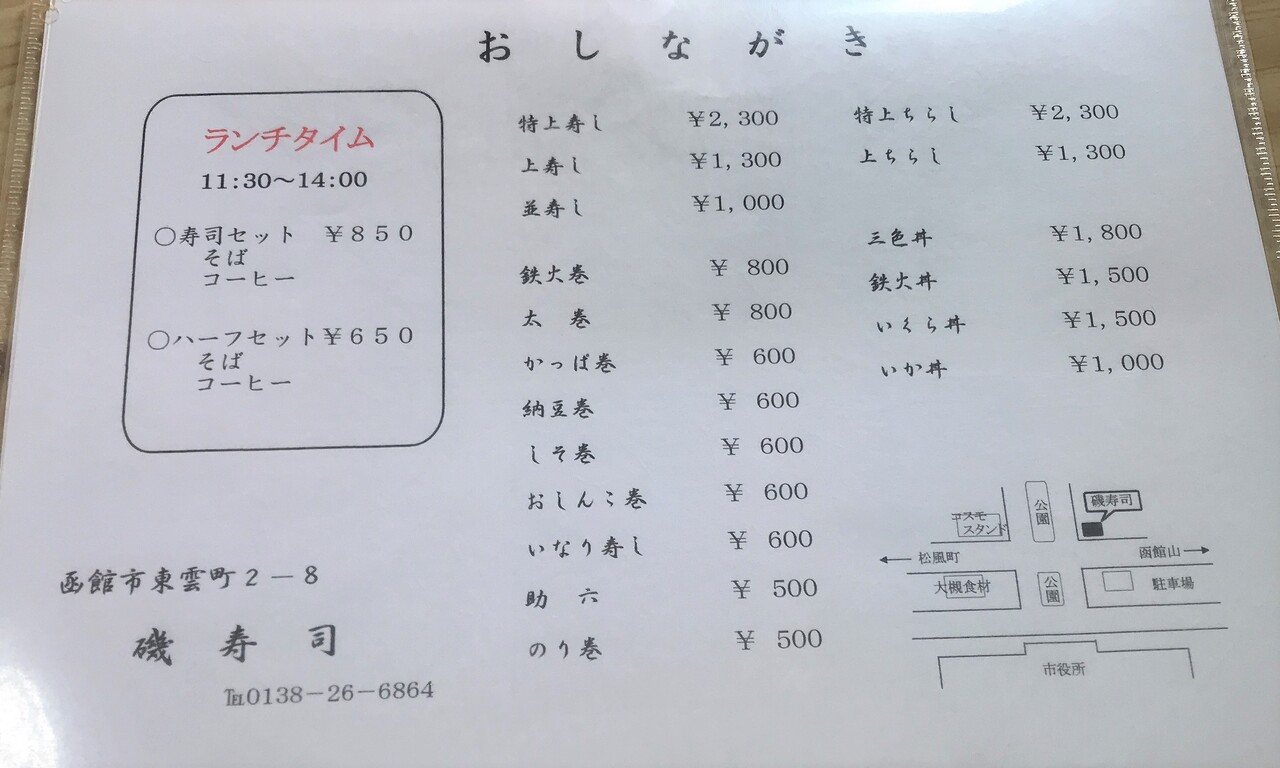 おしながき
ランチタイム
11:30～14:00
○寿司セット ￥８５０
そば
コーヒー
○ハーフセット￥６５０
そば
コーヒー
函館市東雲町２－８
磯寿司
℡0138－26－6864
特上寿し ￥2,300
上寿し ￥1,300
並寿し ￥1,000
鉄火巻 ￥ 800
太巻 ￥ 800
かっぱ巻 ￥ 600
納豆巻 ￥ 600
しそ巻 ￥ 600
おしんこ巻 ￥ 600
いなり寿し ￥ 600
助六 ￥ 500
のり巻 ￥ 500
特上ちらし ￥2,300
上ちらし ￥1,300
三色丼 ￥1,800
鉄火丼 ￥1,500
いくら丼 ￥1,500
いか丼 ￥1,000
公園
磯寿司
コスモ
スタンド
松風町
函館山
大槻食材
公園
駐車場
市役所